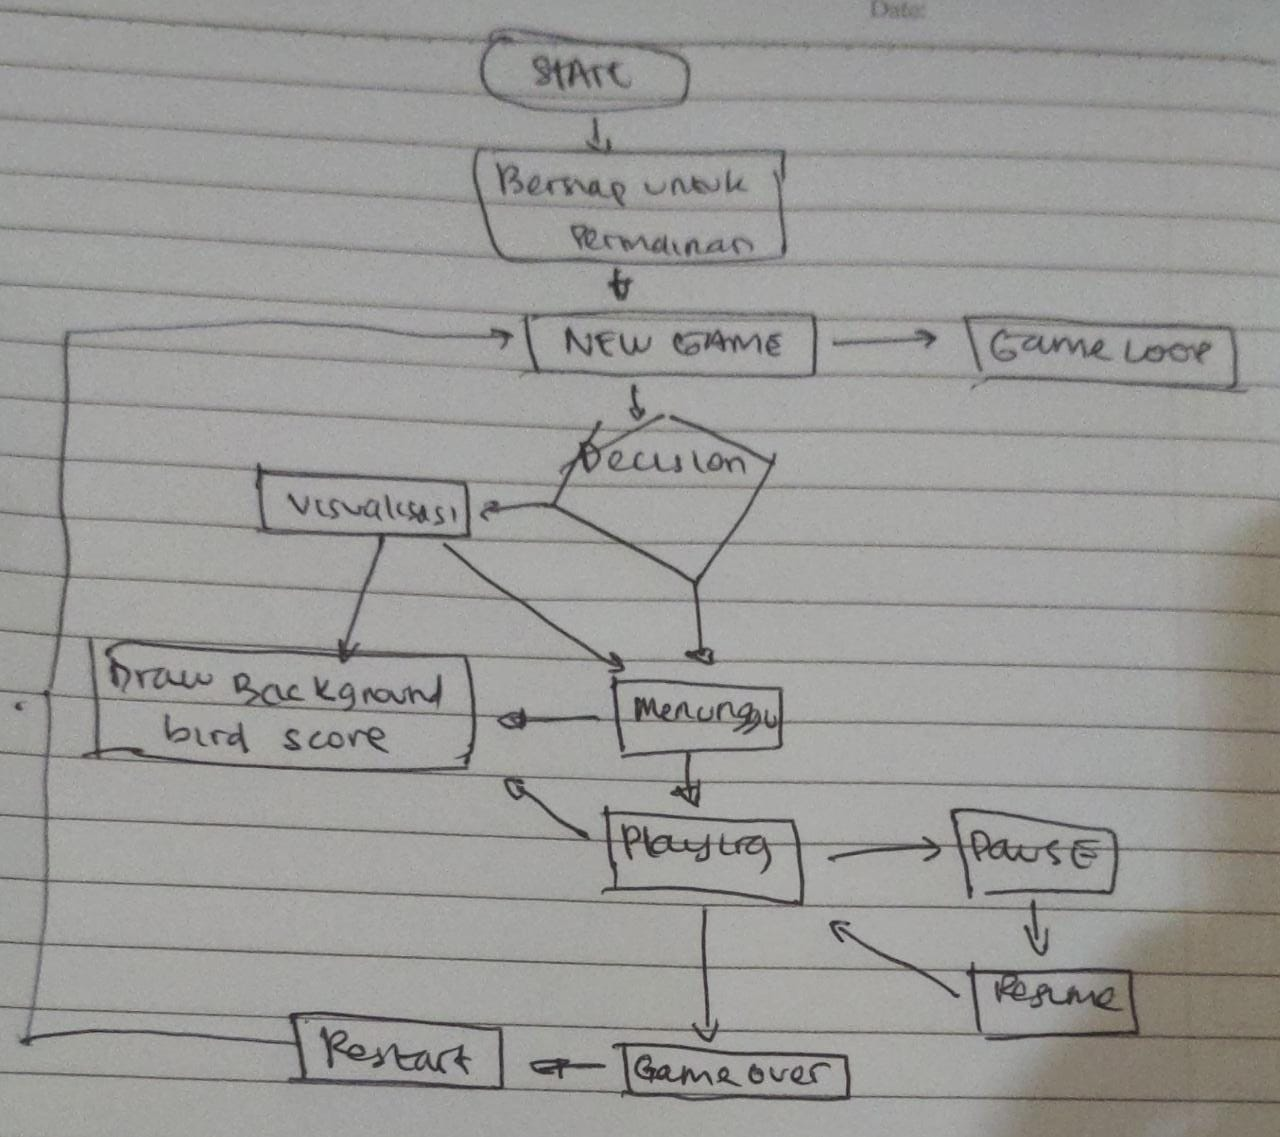 Date:
START
Bersiap untuk
Permainan
NEW GAME
Game Loop
Decision
Visualisasi
Draw Background
bird score
Menunggu
Playing
Pause
Resume
Restart
Game over